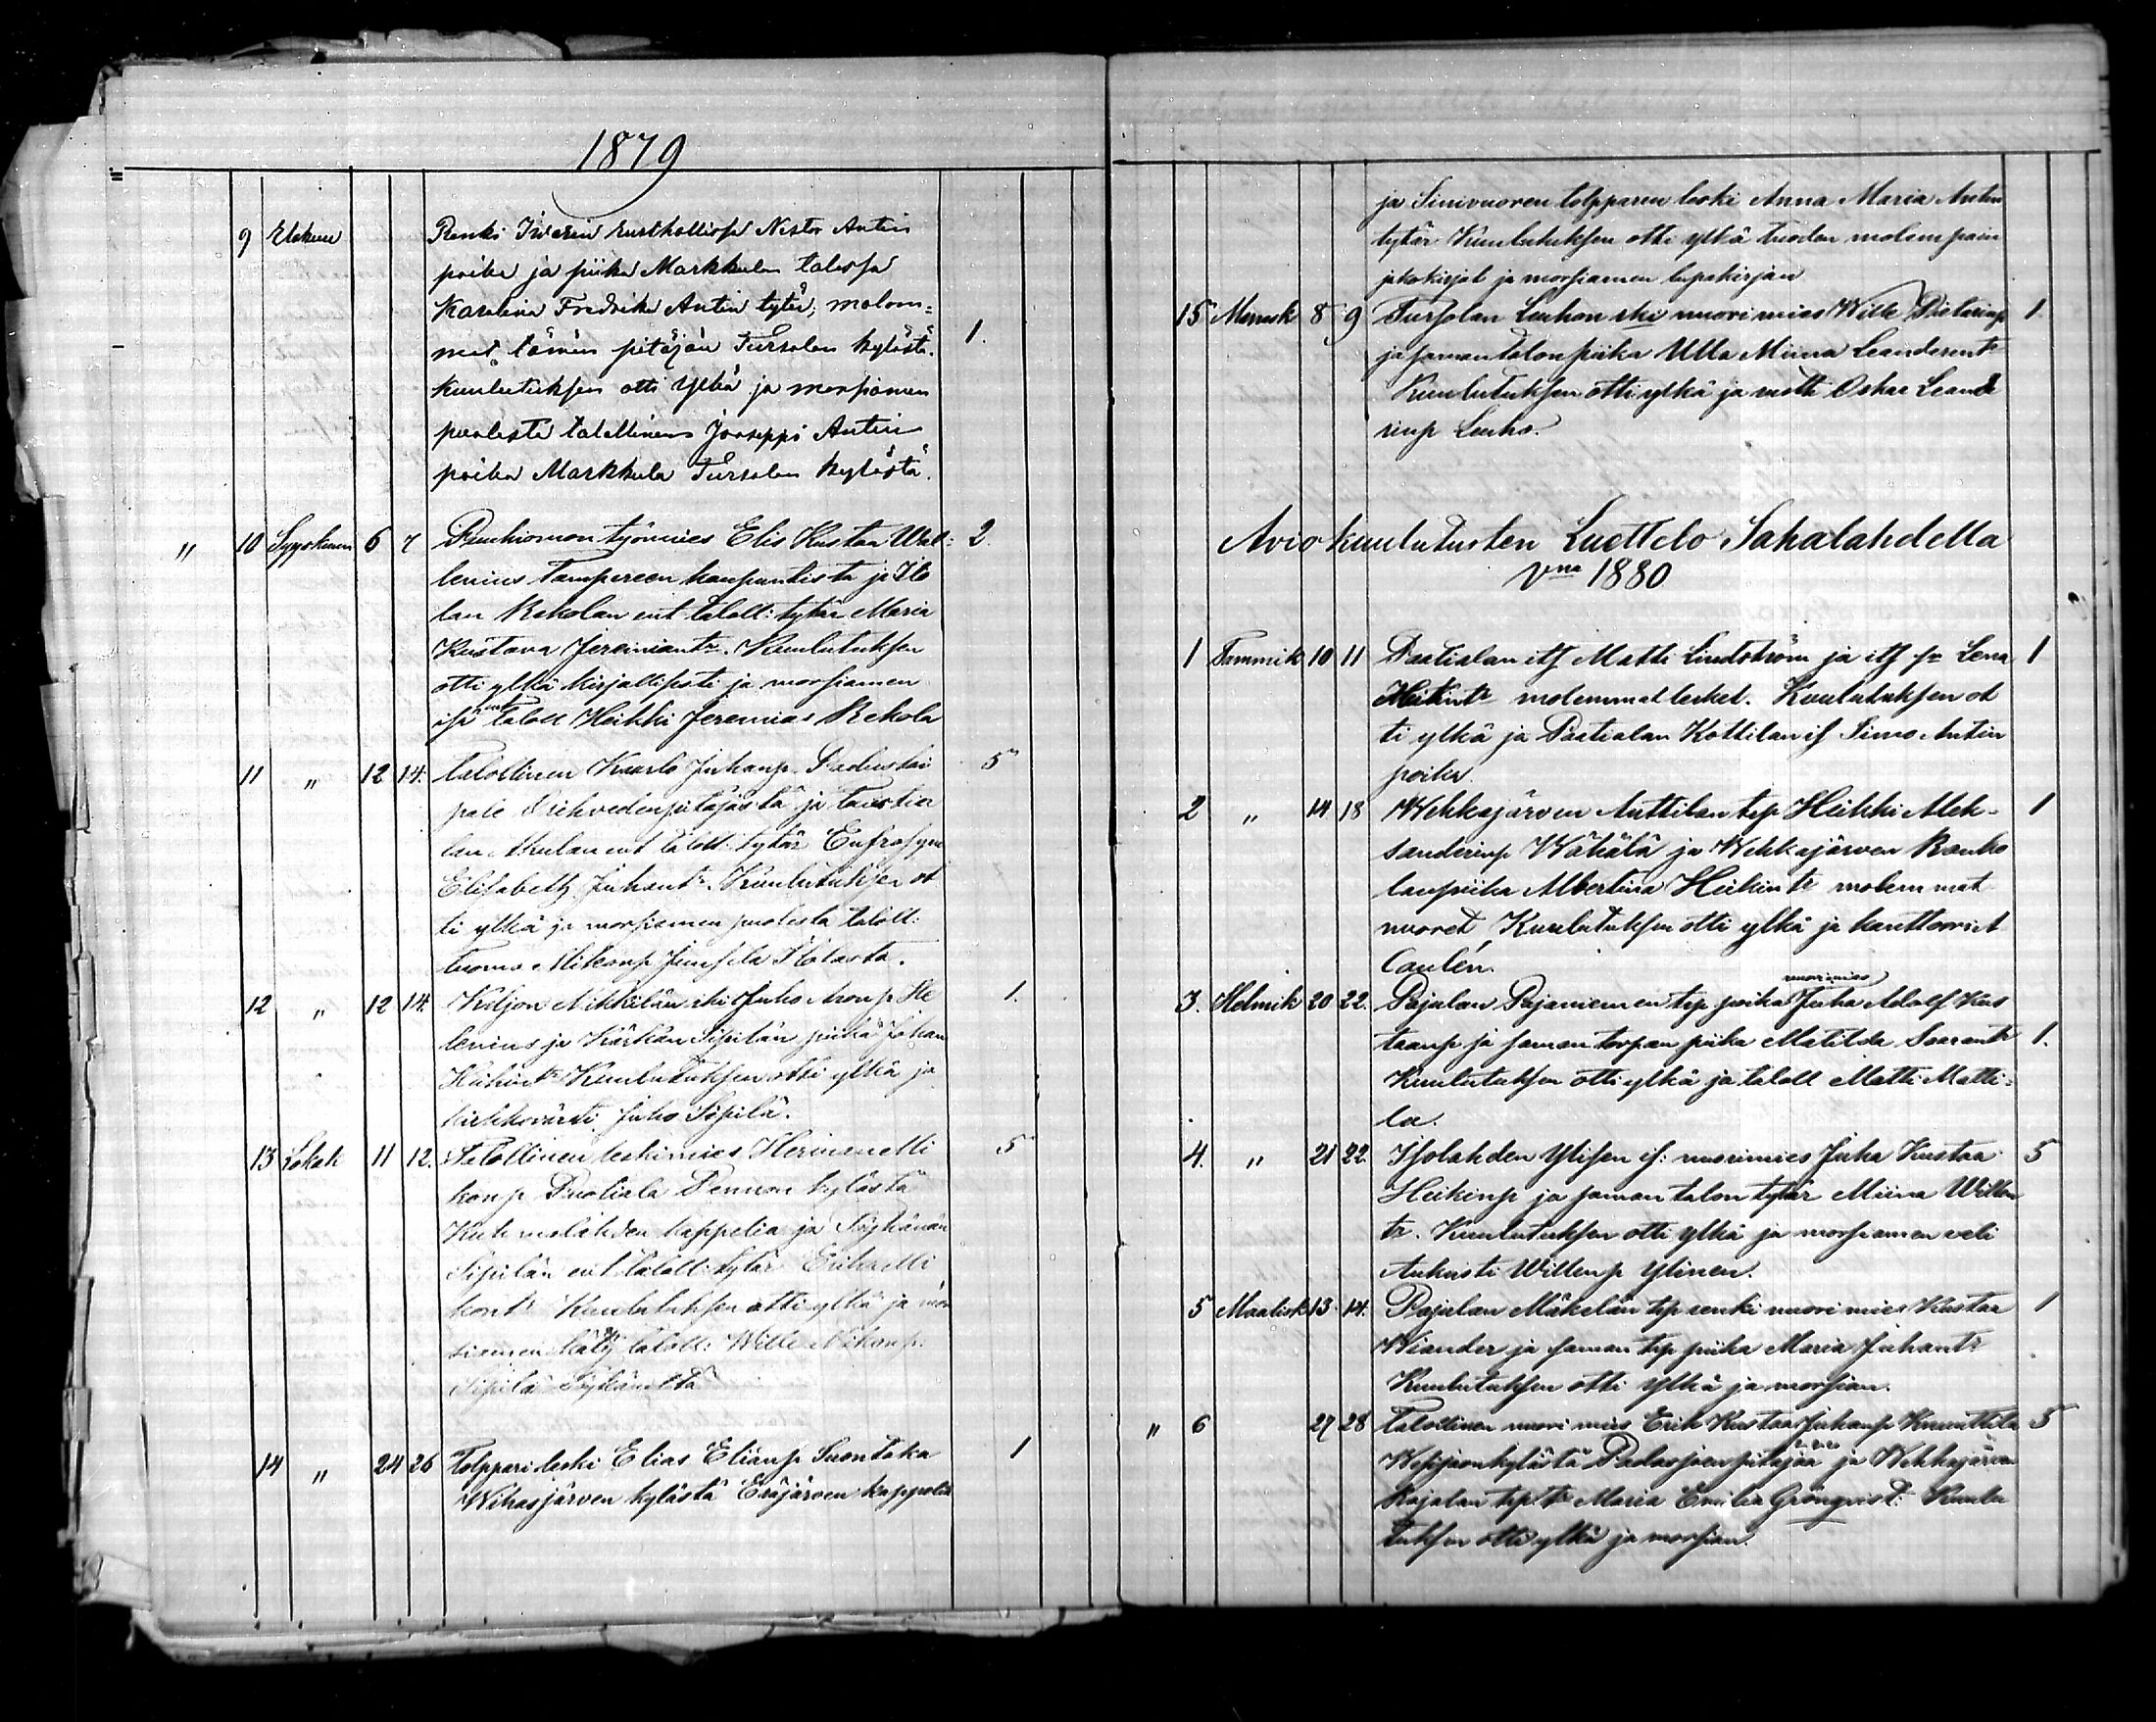 1879
9 Elokuu Renki Iiverin rusthollissa Nestor Antin
poika ja piika Markkulan talossa
Karolina Fredrika Antin tytär, molem=
mat tämän pitäjän Tursolan kylästä. 1.
Kuulutuksen otti ylkä ja morsiamen
puolesta talollinen Jooseppi Antin
poika Markkula Tursolan kylästä.
" 10 Syyskuun 6 7 työmies Elis Kustaa Wal= 2.
lenius Tampereen kaupunkista ja Ilo
lan Rekolan ent taloll: tytär Maria
Kustava Jeremiantr. Kuulutuksen
otti ylkä kirjallisesti ja morsiamen
isä ent taloll Heikki Jeremias Rekola
11 " 12 14. Talollinen Kaarlo Juhanp. 5
pale pitäjästä ja
lan ent taloll. tytär Eufrosyne
Elisabeth Juhantr. Kuulutuksen ot
ti ylkä ja morsiamen puolesta taloll:
Tuomo Mikonp Junsila Ilolasta.
12 " 12 14. Kiljon Mikkilän Juho Aronp He 1.
lenius ja Kärkän Sipilän piika Johan
Heikintr Kuulutuksen otti ylkä ja
kirkkovärti Juho Sipilä.
13 Lokak 11 12. Talollinen leskimies Herman Mi 5
konp Puotiala Pennon kylästä
Kuhmalahden kappelia ja
Sipilän ent taloll. tytär Erika Mi
kontr Kuulutuksen otti ylkä ja mor
siamen taloll: Wille Mikonp.
Sipilä
14 " 24 26 Torppari leski Elias Elianp Suontaka 1
Wihasjärven kylästä Eräjärven kappelia
ja Sinivuoren torpparin leski Anna Maria Antin
tytär Kuulutuksen otti ylkä tuoden molempain
jakokirjat ja morsiamen lupakirjan
15 Marrask 8 9 Tursolan Leuhon nuori mies Wille 1.
ja saman talon piika Ulla Miina Leanderintr
Kuulutuksen otti ylkä ja Oskar Leande
rinp Leuho.
Avio kuulutusten Luettelo Sahalahdella
vna 1880
1 Tammik 10 11 Paatialan its Matti Lindström ja its Lena 1
Heikintr molemmat lesket. Kuulutuksen ot
ti ylkä ja Paatialan Kottilan is Simo Antin
poika.
2 " 14 18 Wehkajärven Anttilan trp Heikki Alek- 1
sanderinp Wähälä ja Wehkajärven Rauko
lan piika Albertina Heikintr molemmat
nuoret, Kuulutuksen otti ylkä ja kanttoori A
Caulén.
3. Helmik 20 22. Pajulan Pajaniemen trp poika nuorimies Juha Adolf Kus
taanp ja saman torpan piika Matilda 1.
Kuulutuksen otti ylkä ja taloll Matti Matti=
la.
4. " 21 22. Isolahden Ylisen is: nuorimies Juha Kustaa 5
Heikinp ja saman talon tytär Miina Willen
tr. Kuulutuksen otti ylkä ja morsiamen veli
Aukusti Willenp Ylinen.
5 Maalisk 13. 14. Pajulan Mäkelän trp renki nuori mies Kustaa 1
Wiander ja saman trp piika Maria Juhantr
Kuulutuksen otti ylkä ja morsian.
" 6 27 28 Talollinen nuori mies Erik Kustaa Juhanp Knuuttila 5
kylästä Padasjoen pitäjää ja Wehkajärven
Rajalan trp tr Maria Emilia Grönqvist. Kuulu
tuksen otti ylkä ja morsian.